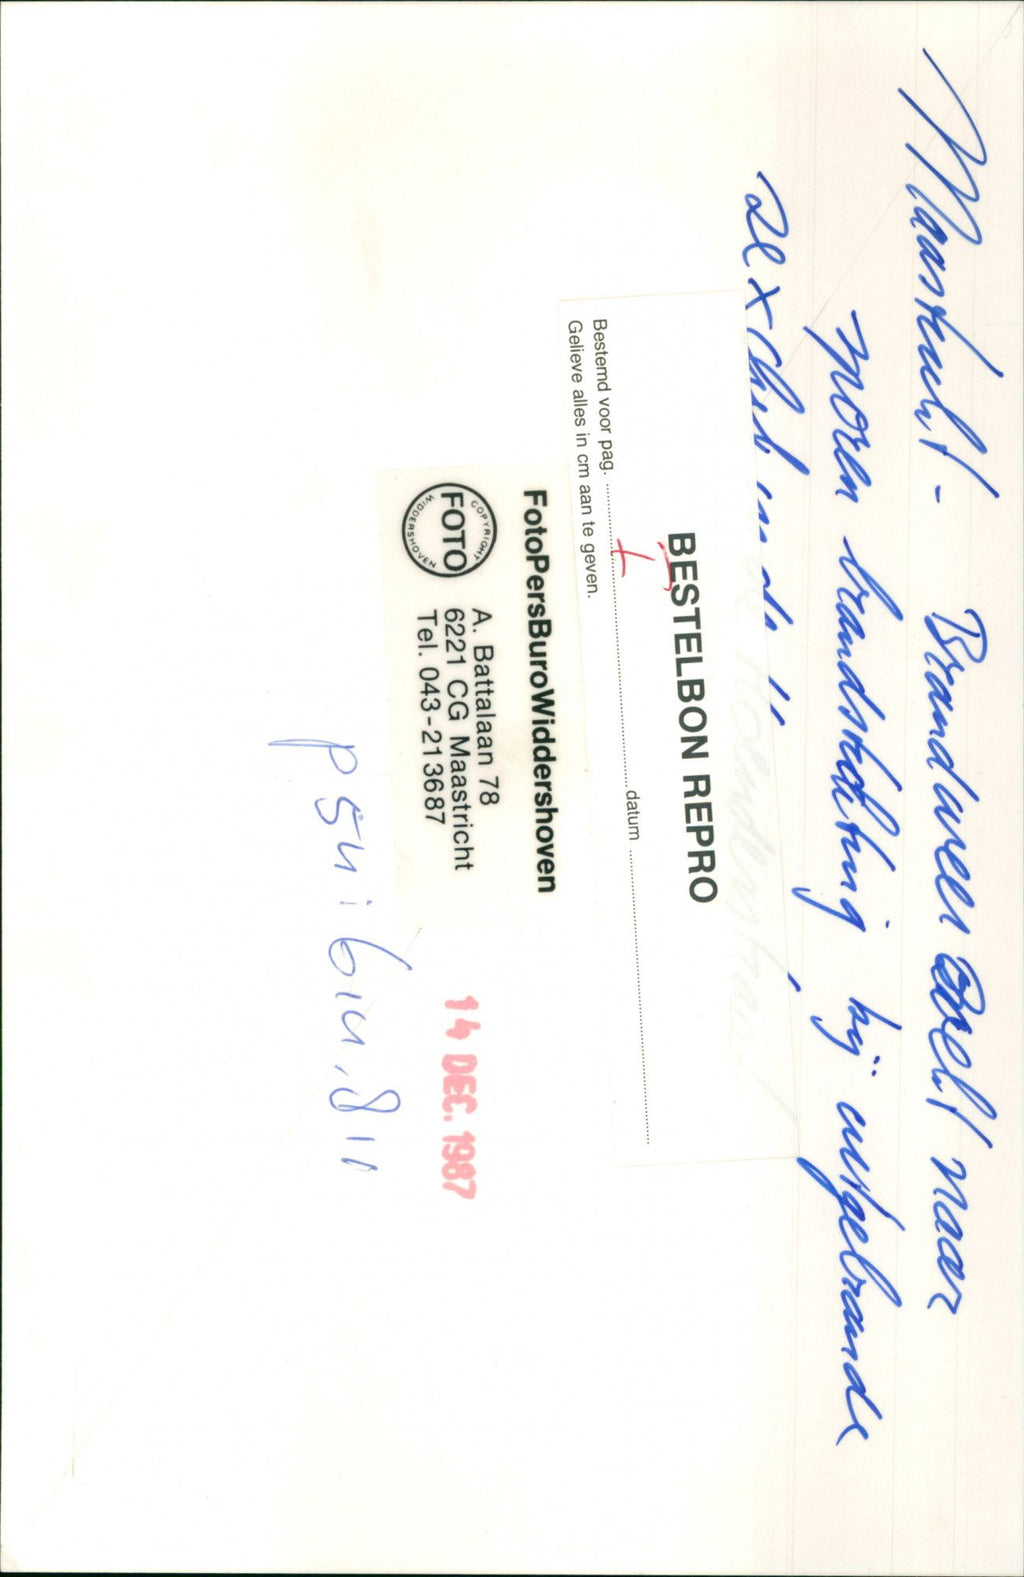 Maastricht - Brandweer zoekt naar
sporen brandstichting bij uitgebrande
sexclub in de
BESTELBON REPRO
Bestemd voor pag. datum
Gelieve alles in cm aan te geven.
FotoPersBuroWiddershoven
COPYRIGHT
FOTO
WIDDERSHOVEN
A. Battalaan 78
6221 CG Maastricht
Tel. 043-213687
14 DEC. 1987